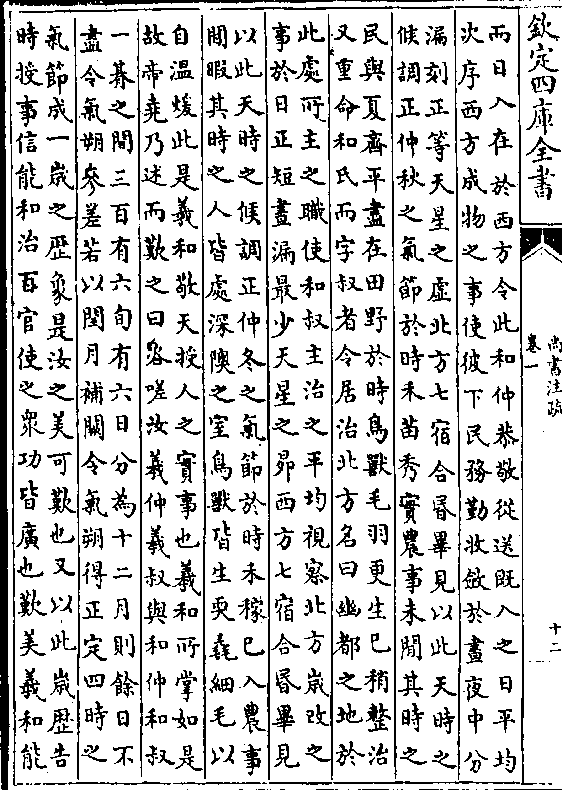 欽定四庫全書
尚書注疏
卷一
十二
而日入在於西方令此和仲恭敬從送既入之日平均
次序西方成物之事使彼下民務勤收斂於晝夜中分
漏刻正等天星之虛北方七宿合昏畢見以此天時之
候調正仲秋之氣節於時禾苗秀實農事未閒其時之
民與夏齊平盡在田野於時鳥獸毛羽更生已稍整治
又重命和氏而字叔者令居治北方名曰幽都之地於
此處所主之職使和叔主治之平均視察北方歲改之
事於日正短晝漏最少天星之昴西方七宿合昏畢見
以此天時之候調正仲冬之氣節於時禾稼已入農事
閒暇其時之人皆處深隩之室鳥獸皆生耎毳細毛以
自溫煖此是羲和敬天授人之實事也羲和所掌如是
故帝堯乃述而歎之曰咨嗟汝羲仲羲叔與和仲和叔
一朞之間三百有六旬有六日分為十二月則餘日不
盡令氣朔參差若以閏月補闕令氣朔得正定四時之
氣節成一歲之歷象是汝之美可歎也又以此歲歷告
時授事信能和治百官使之衆功皆廣也歎美羲和能